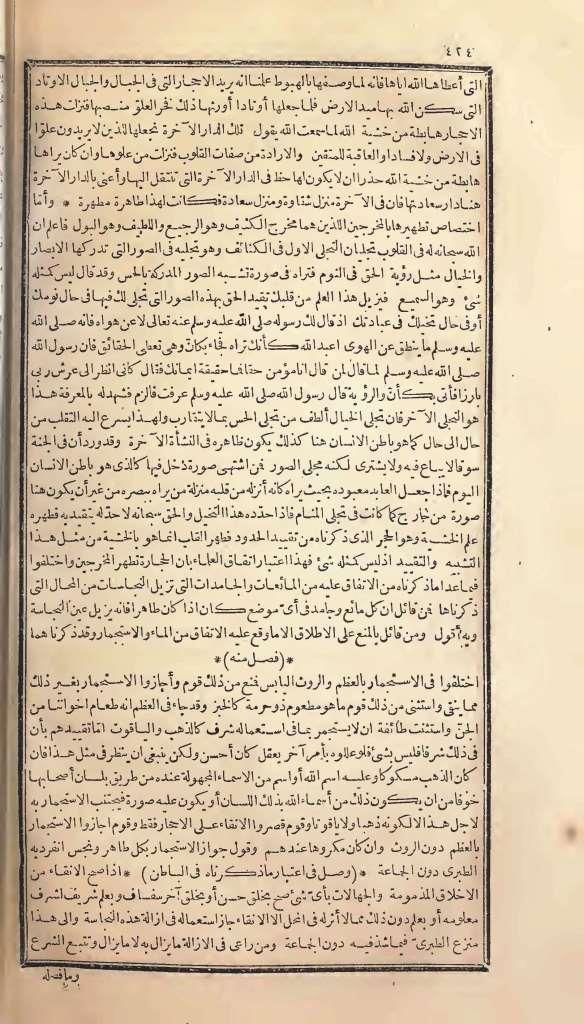 ٤٢٤
التى أعطاها الله اياها فانه لما وصفها بالهبوط علمنا انه يريد الاحجار التى فى الجبال والجبال الاوتاد
التى سكن الله بها ميد الارض فلما جعلها أوتادا أورثها ذلك نفر العلو منصبها فنزلت هذه
الاحجار هابطة من خشية الله لما سمعت الله يقول تلك الدار الآخرة نجعلها للذين لا يريدون علوّا
فى الارض ولا فسادا والعاقبة للمتقين والارادة من صفات القلوب فنزلت من علوها وان كان يراها
هابطة من خشية الله حذرا ان لا يكون لها حظ فى الدار الآخرة التى تنتقل اليها وأعنى بالدار الآخرة
هنا دار سعادتها فان فى الآخرة منزل شقاوة ومنزل سعادة فكانت لهذا طاهرة مطهرة * وأمّا
اختصاص تطهيرها بالمخرجين اللذين هما مخرج الكثيف وهو الرجيع واللطيف وهو البول فاعلم ان
الله سبحانه له فى القلوب تجليان التجلى الاول فى الكثائف وهو تجليه فى الصور التى تدركها الابصار
والخيال مثل رؤية الحق فى النوم فتراه فى صورة تشبه الصور المدركة بالحس وقد قال ليس كمثله
شئ وهو السميع فيزيل هذا العلم من قلبك تقيد الحق بهذه الصور التى تجلى لك فيها فى حال نومك
أو فى حال تخيلك فى عبادتك اذ قال لك رسوله صلى الله عليه وسلم عنه تعالى لا عن هواه فانه صلى الله
عليه وسلم ما ينطق عن الهوى اعبد الله كأنك تراه فجاء بكأنّ وهى تعطى الحقائق فان رسول الله
صلى الله عليه وسلم لما قال لمن قال انا مؤمن حقا فما حقيقة ايمانك فقال كأنى انظر الى عرش ربى
بارزا فأتى بكأنّ والرؤية قال رسول الله صلى الله عليه وسلم عرفت فالزم فشهد له بالمعرفة هذا
هو التجلى الآخر فان تجلى الخيال ألطف من تجلى الحس بما لا يتقارب ولهذا يسرع اليه التقلب من
حال الى حال كما هو باطن الانسان هنا كذلك يكون ظاهره فى النشأة الآخرة وقد ورد أن فى الجنة
سوقا لا يباع فيه ولا يشترى لكنه مجلى الصور فمن اشتهى صورة دخل فيها كالذى هو باطن الانسان
اليوم فاذا جعل العابد معبوده بحيث يراه كانه أنزله من قلبه منزلة من يراه ببصره من غير أن يكون هنا
صورة من خارج كما كانت فى تجلى المنام فاذا حدّده هذا التخيل والحق سبحانه لا حدّ له يتقيد به فطهره
علم الخشية وهو الحجر الذى ذكرناه من تقييد الحدود فطهر القلب انما هو بالخشية من مثل هذا
التشبيه والتقييد اذ ليس كمثله شئ فهذا اعتبار اتفاق العلماء بان الحجارة تطهر المخرجين واختلفوا
فيما عدا ما ذكرناه من الاتفاق عليه من المائعات والجامدات التى تزيل النجاسات من المحال التى
ذكرناها فمن قائل ان كل مائع وجامد فى أىّ موضع كان اذا كان طاهرا فانه يزيل عين النجاسة
وبه أقول ومن قائل بالمنع على الاطلاق الا ما وقع عليه الاتفاق من الماء والاستجمار وقد ذكرناهما
* (فصل منه) *
اختلفوا فى الاستجمار بالعظم والروث اليابس فمنع من ذلك قوم وأجازوا الاستجمار بغير ذلك
مما ينقى واستثنى من ذلك قوم ما هو مطعوم ذو حرمة كالخبز وقد جاء فى العظم انه طعام اخواننا من
الجنّ واستثنت طائفة ان لا يستجمر بما فى استعماله سرف كالذهب والياقوت اما تقييدهم بأن
فى ذلك شرفا فليس بشئ فلو علاوه بأمر آخر يعقل كان أحسن ولكن ينبغى ان ينظر فى مثل هذا فان
كان الذهب مسكوكا وعليه اسم الله أو اسم من الاسماء المجهولة عنده من طريق بلسان أصحابها
خوفا من ان يكون ذلك من أسماء الله بذلك اللسان أو يكون عليه صورة فيجتنب الاستجمار به
لاجل هذا لا لكونه ذهبا ولا ياقوتا وقوم قصروا الانقاء على الاحجار فقط وقوم اجازوا الاستجمار
بالعظم دون الروث وان كان مكروها عندهم وقول جواز الاستجمار بكل طاهر ونجس انفرد به
الطبرى دون الجماعة * (وصل فى اعتبار ما ذكرناه فى الباطن) * اذا صح الانقاء من
الاخلاق المذمومة والجهالات بأى شئ صح بخلق حسن أو بخلق آخر سفساف وبعلم شريف لشرف
معلومه أو بعلم دون ذلك مما لا أثر له فى المحل الا الانقاء جاز استعماله فى ازالة هذه النجاسة والى هذا
منزع الطبرىّ فيما شذ فيه دون الجماعة ومن راعى فى الازالة ما يزال به لا ما يزال وتتبع الشرع
وما فصله